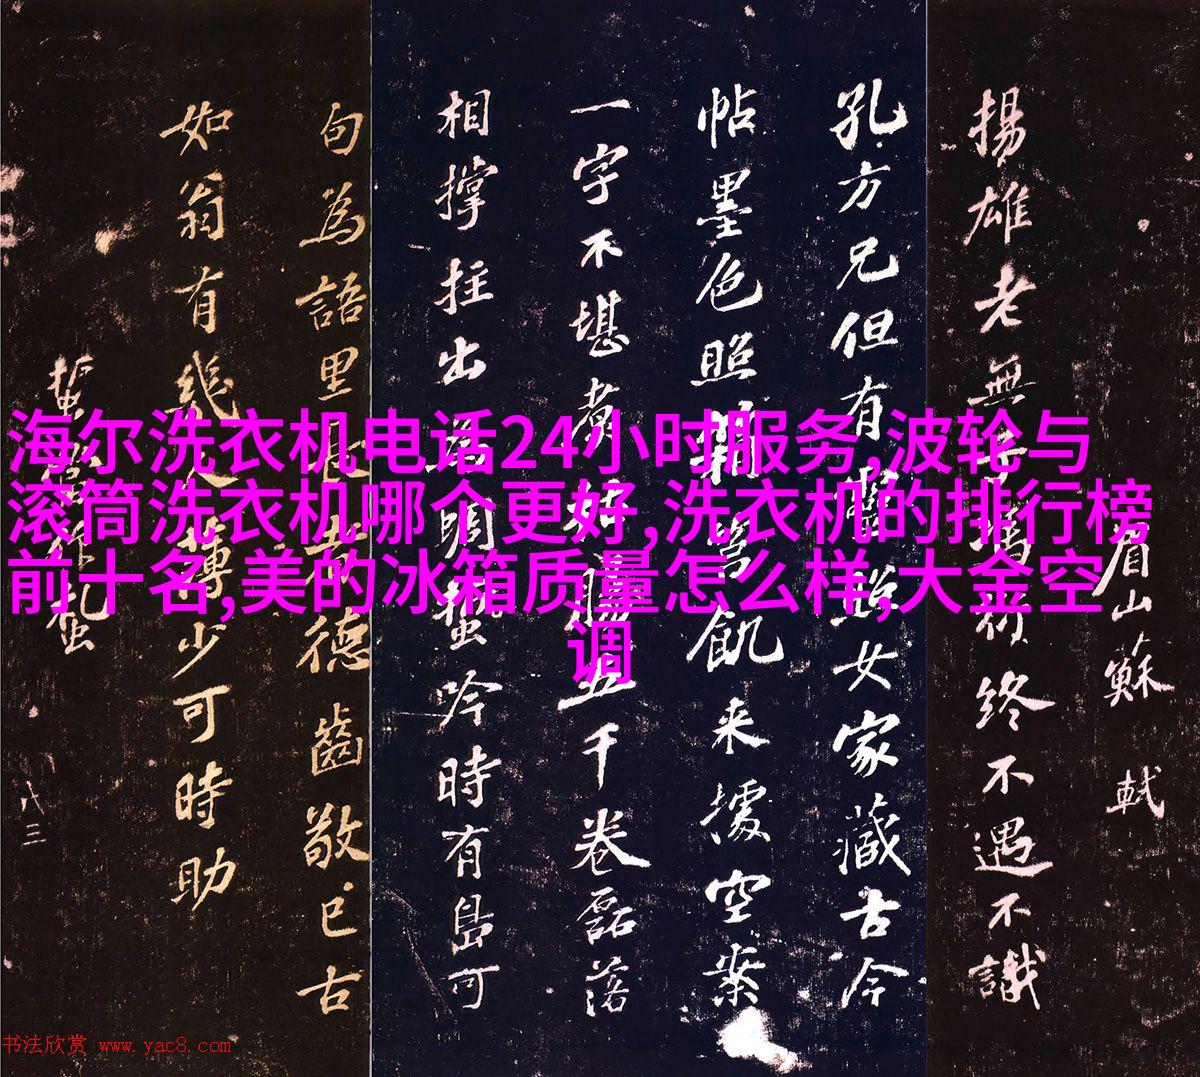 海尔洗衣机电话24小时服务,波轮与
滚筒洗衣机哪个更好,洗衣机的排行榜
前十名,美的冰箱质量怎么样,大金空
调
眉山蘇軾
揚雄老無子馮衍終不遇不識
孔方兄但有靈照女家藏古今
帖墨色照箱筥飢来據空案
一字不堪煮枯腸五千卷磊落
相撑拄出蛩吟時有島可
句為語里長者德齒敬已古
如翁有幾人薄少可時助
八三
书法欣赏 www.yac8.com